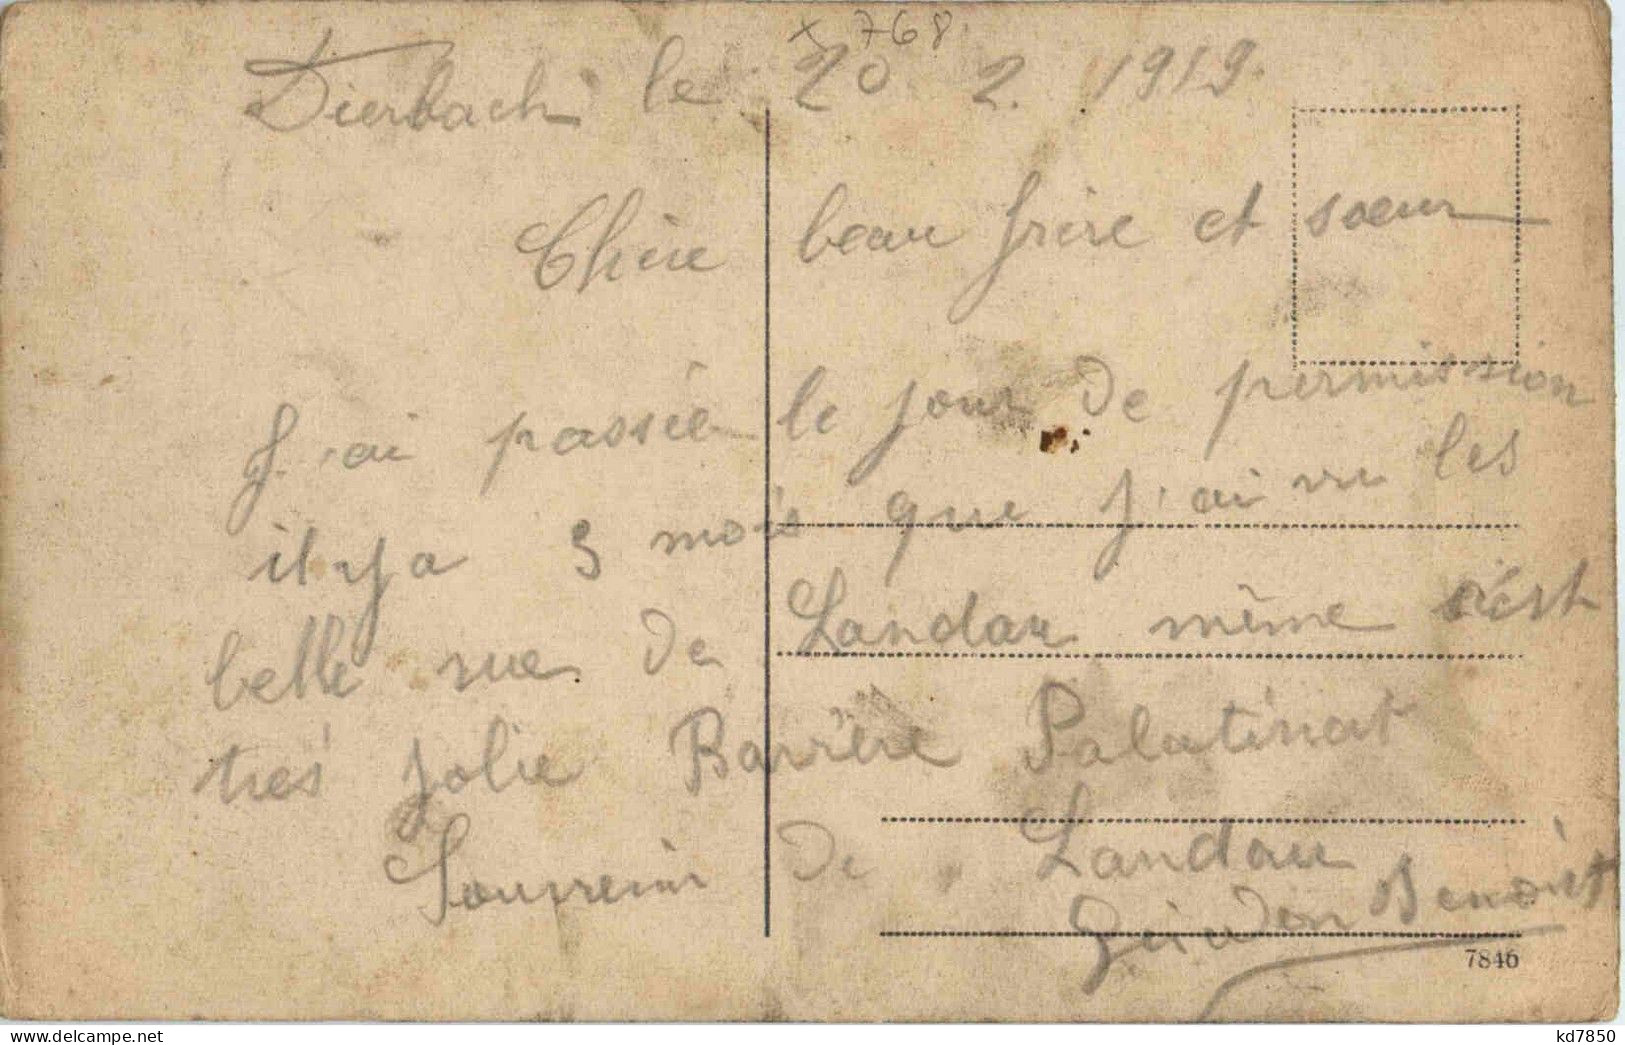 x 768.
Dierbach le 20 2. 1919.
Chère beau frère et sœur
J'ai passée le jour de permission
il y a 3 mois que j'ai vu les
belle rue de Landau même c'est
très jolie Barrère Palatinat
Souvenir de Landau
Benoist
7846
www.delcampe.net
kd7850